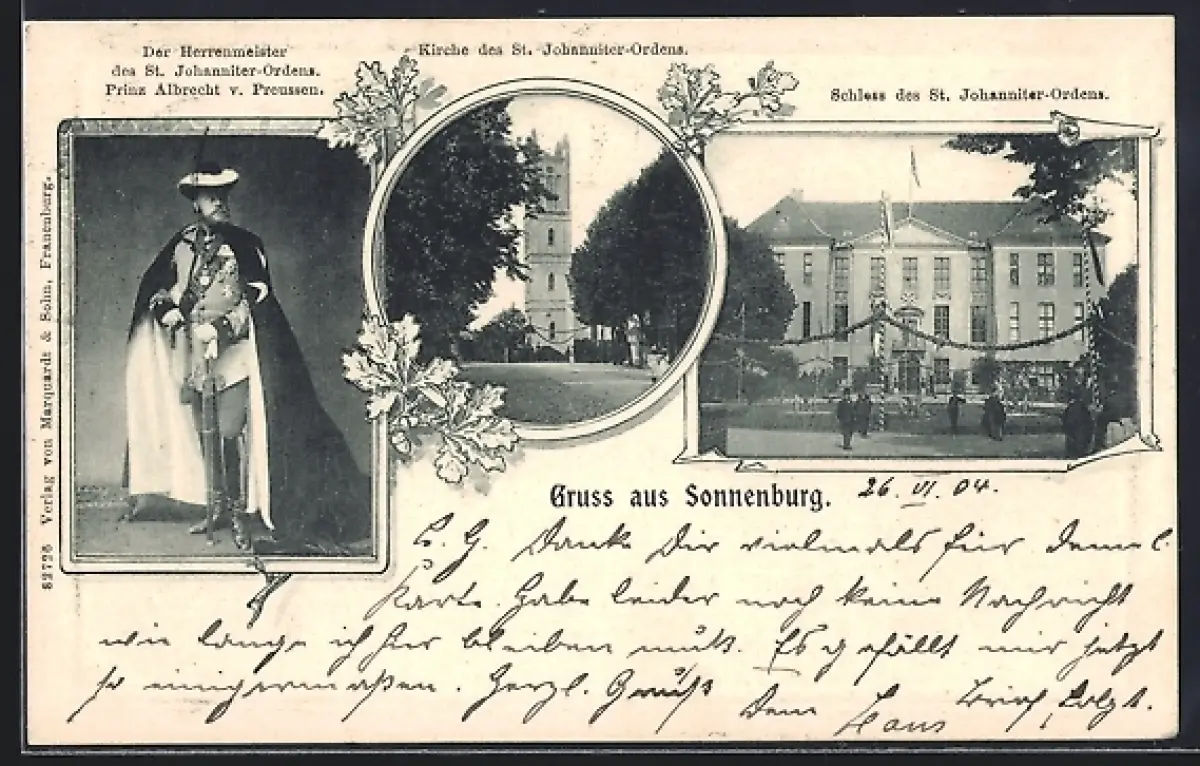 Der Herrenmeister
des St. Johanniter-Ordens.
Prinz Albrecht v. Preussen.
Kirche des St. Johanniter-Ordens.
Schloss des St. Johanniter-Ordens.
82726 Verlag von Marquardt & Sohn, Frauenburg.
Gruss aus Sonnenburg.
26. VI. 04.
L. G. Danke Dir vielmals für Deine l.
Karte. Habe leider noch keine Nachricht
wie lange ich hier bleiben muß. Es gefällt mir jetzt
so einigermaßen. Herzl. Gruß
Dein Hans
Brief folgt.